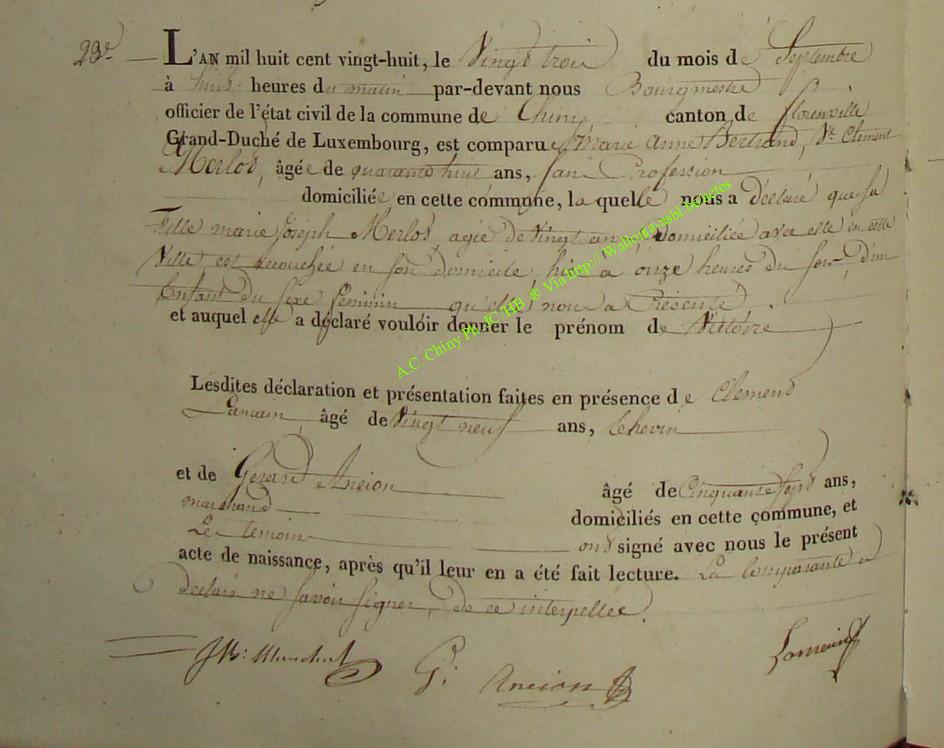 23e L'AN mil huit cent vingt-huit, le Vingt trois du mois de Septembre
à huit heures du matin par-devant nous Bourgmestre
officier de l'état civil de la commune de Chiny, canton de florenville
Grand-Duché de Luxembourg, est comparue Marie Anne Bertrand, Ve Clement
Merlos, âgée de quarante huit ans, san Profession
domiciliée en cette commune, la quelle nous a déclaré que sa
Fille marie joseph Merlos, agée de Vingt ans domiciliée avec elle en cette
Ville est accouchée en son domicile hier à onze heures du soir, d'un
Enfant du sexe feminin qu'elle nous a Présenté
et auquel elle a déclaré vouloir donner le prénom de Victoire
Lesdites déclaration et présentation faites en présence de Clemend
Lamain, âgé de Vingt neuf ans,
et de Gerard Ancion âgé de Cinquante sept ans,
marchand domiciliés en cette commune, et
Le temoin ond signé avec nous le présent
acte de naissance, après qu'il leur en a été fait lecture. La Comparante a
declaré ne savoir signer, de ce interpellée.
G. Ancion
A.C. Chiny Ph JC/HB @ Via http:// Wallonia asbl.Beneles